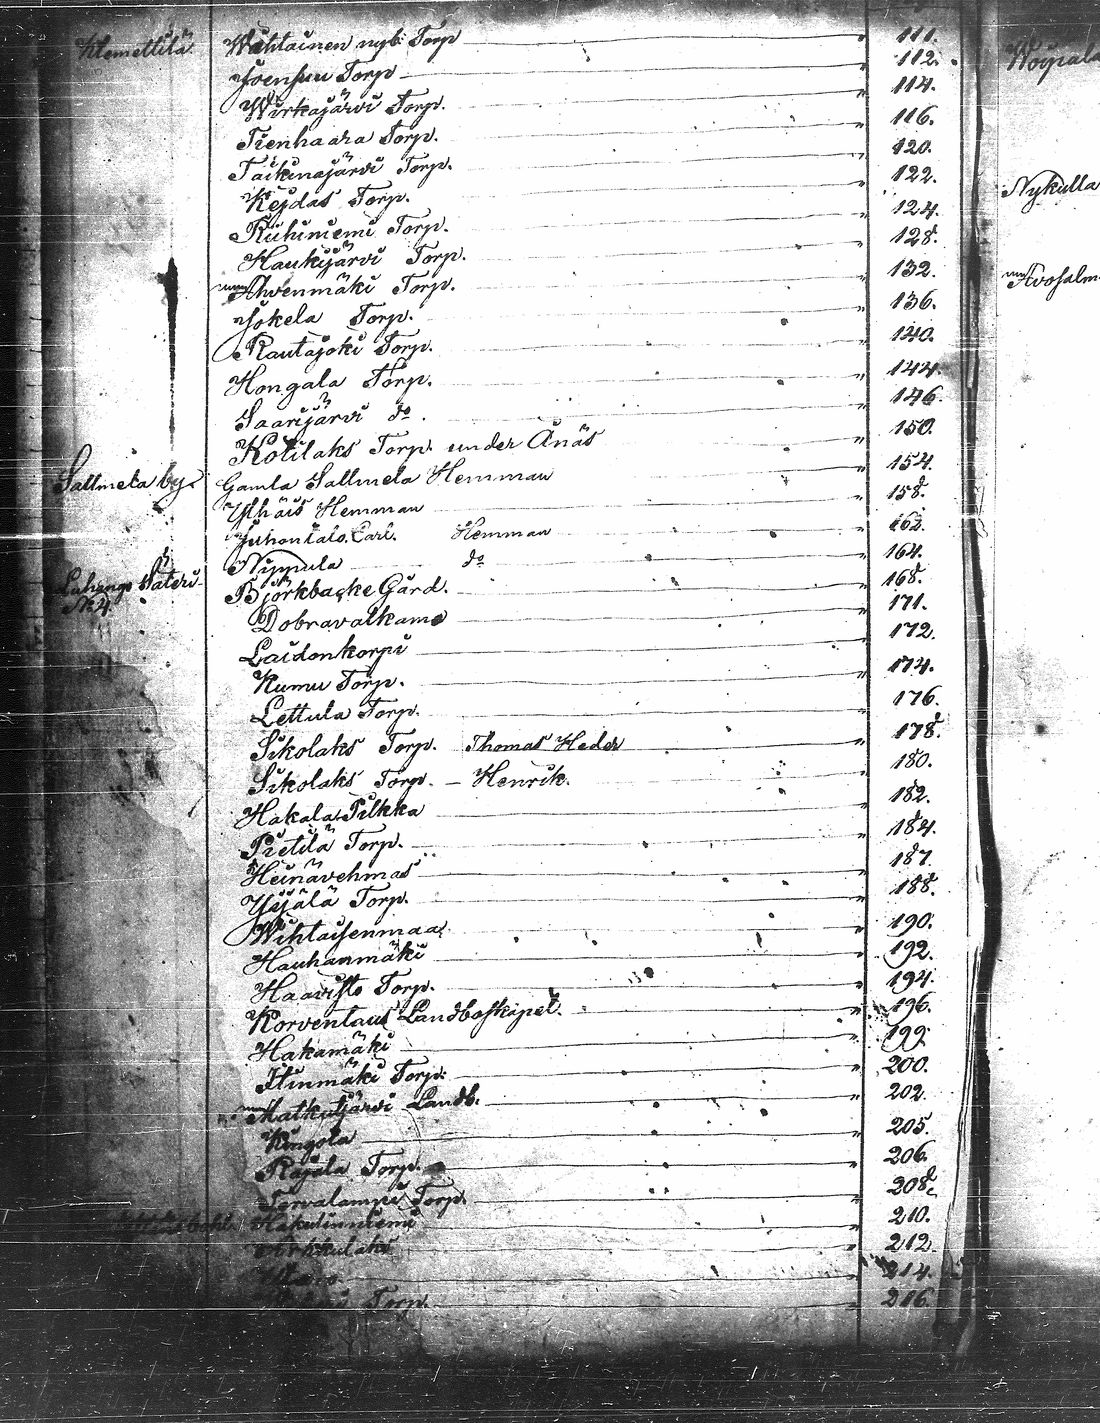 Klemettilä Wähtainen nyb. Torp " 111.
Joensuu Torp " 112.
Wirkajärvi Torp. " 114.
Tienhaara Torp. " 116.
Taikinajärvi Torp. " 120.
Kejdas Torp. " 122.
Riihiniemi Torp. " 124.
Haukijärvi Torp. " 128.
Ahvenmäki Torp. " 132.
Jokela Torp. " 136.
Rautajoki Torp. " 140.
Hongala Torp. " 144.
Saarijärvi do. " 146.
Kotilaks Torp. under Änäs " 150.
Sallmela by. Gamla Sallmela Hemman " 154.
Ylhäis Hemman " 158.
Juhontalo, Carl. Hemman " 162.
Nippula do " 164.
Säteri Björkbacke Gård. " 168.
Dobravalkama " 171.
Laidonkorpi " 172.
Kumu Torp. " 174.
Lettula Torp. " 176.
Sikolaks Torp. Thomas Heder " 178.
Sikolaks Torp. – Henrik. " 180.
Hakala Pilkka " 182.
Pietilä Torp. " 184.
Heinävehmas " 187.
Yijälä Torp. " 188.
Wihtaisenmaa " 190.
Hauhanmäki " 192.
Haavisto Torp. " 194.
Korventaus Landboskapet. " 196.
Hakamäki " 199.
Iinmäki Torp. " 200.
Matkusjärvi Landb. " 202.
Kingola " 205.
Rajala Torp. " 206.
Torvalampi Torp. " 208.
Hakulinniemi " 210.
" 212.
" 214.
Torp. " 216.
Nykulla